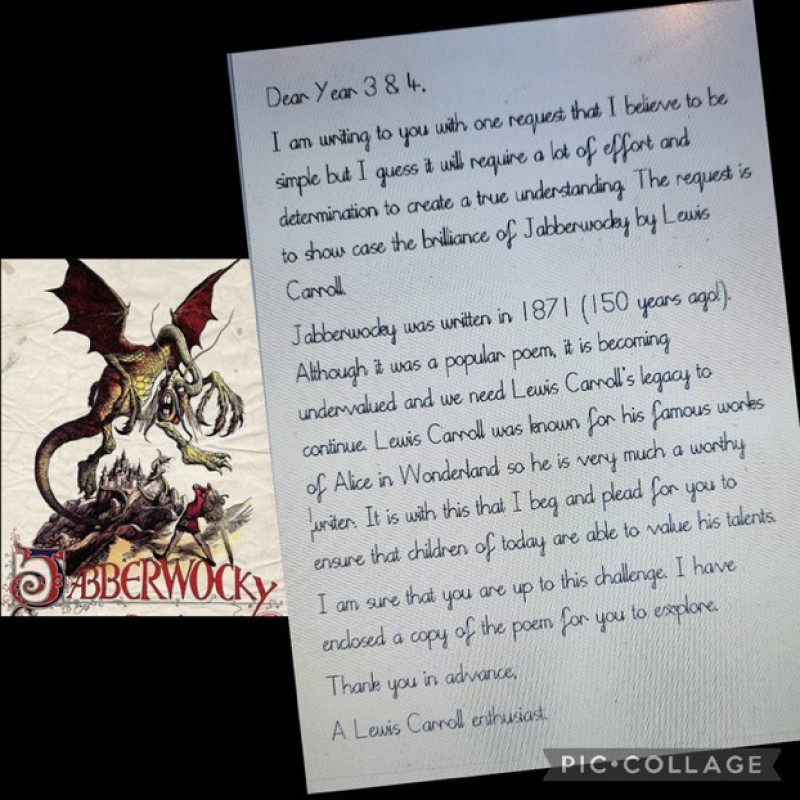 Dear Year 3 & 4.
I am writing to you with one request that I believe to be
simple but I guess it will require a lot of effort and
determination to create a true understanding. The request is
to show case the brilliance of Jabberwocky by Lewis
Carroll.
Jabberwocky was written in 1871 (150 years ago!).
Although it was a popular poem, it is becoming
undervalued and we need Lewis Carroll's legacy to
continue. Lewis Carroll was known for his famous works
of Alice in Wonderland so he is very much a worthy
writer. It is with this that I beg and plead for you to
ensure that children of today are able to value his talents.
I am sure that you are up to this challenge. I have
enclosed a copy of the poem for you to explore.
Thank you in advance,
A Lewis Carroll enthusiast.
JABBERWOCKY
PIC•COLLAGE